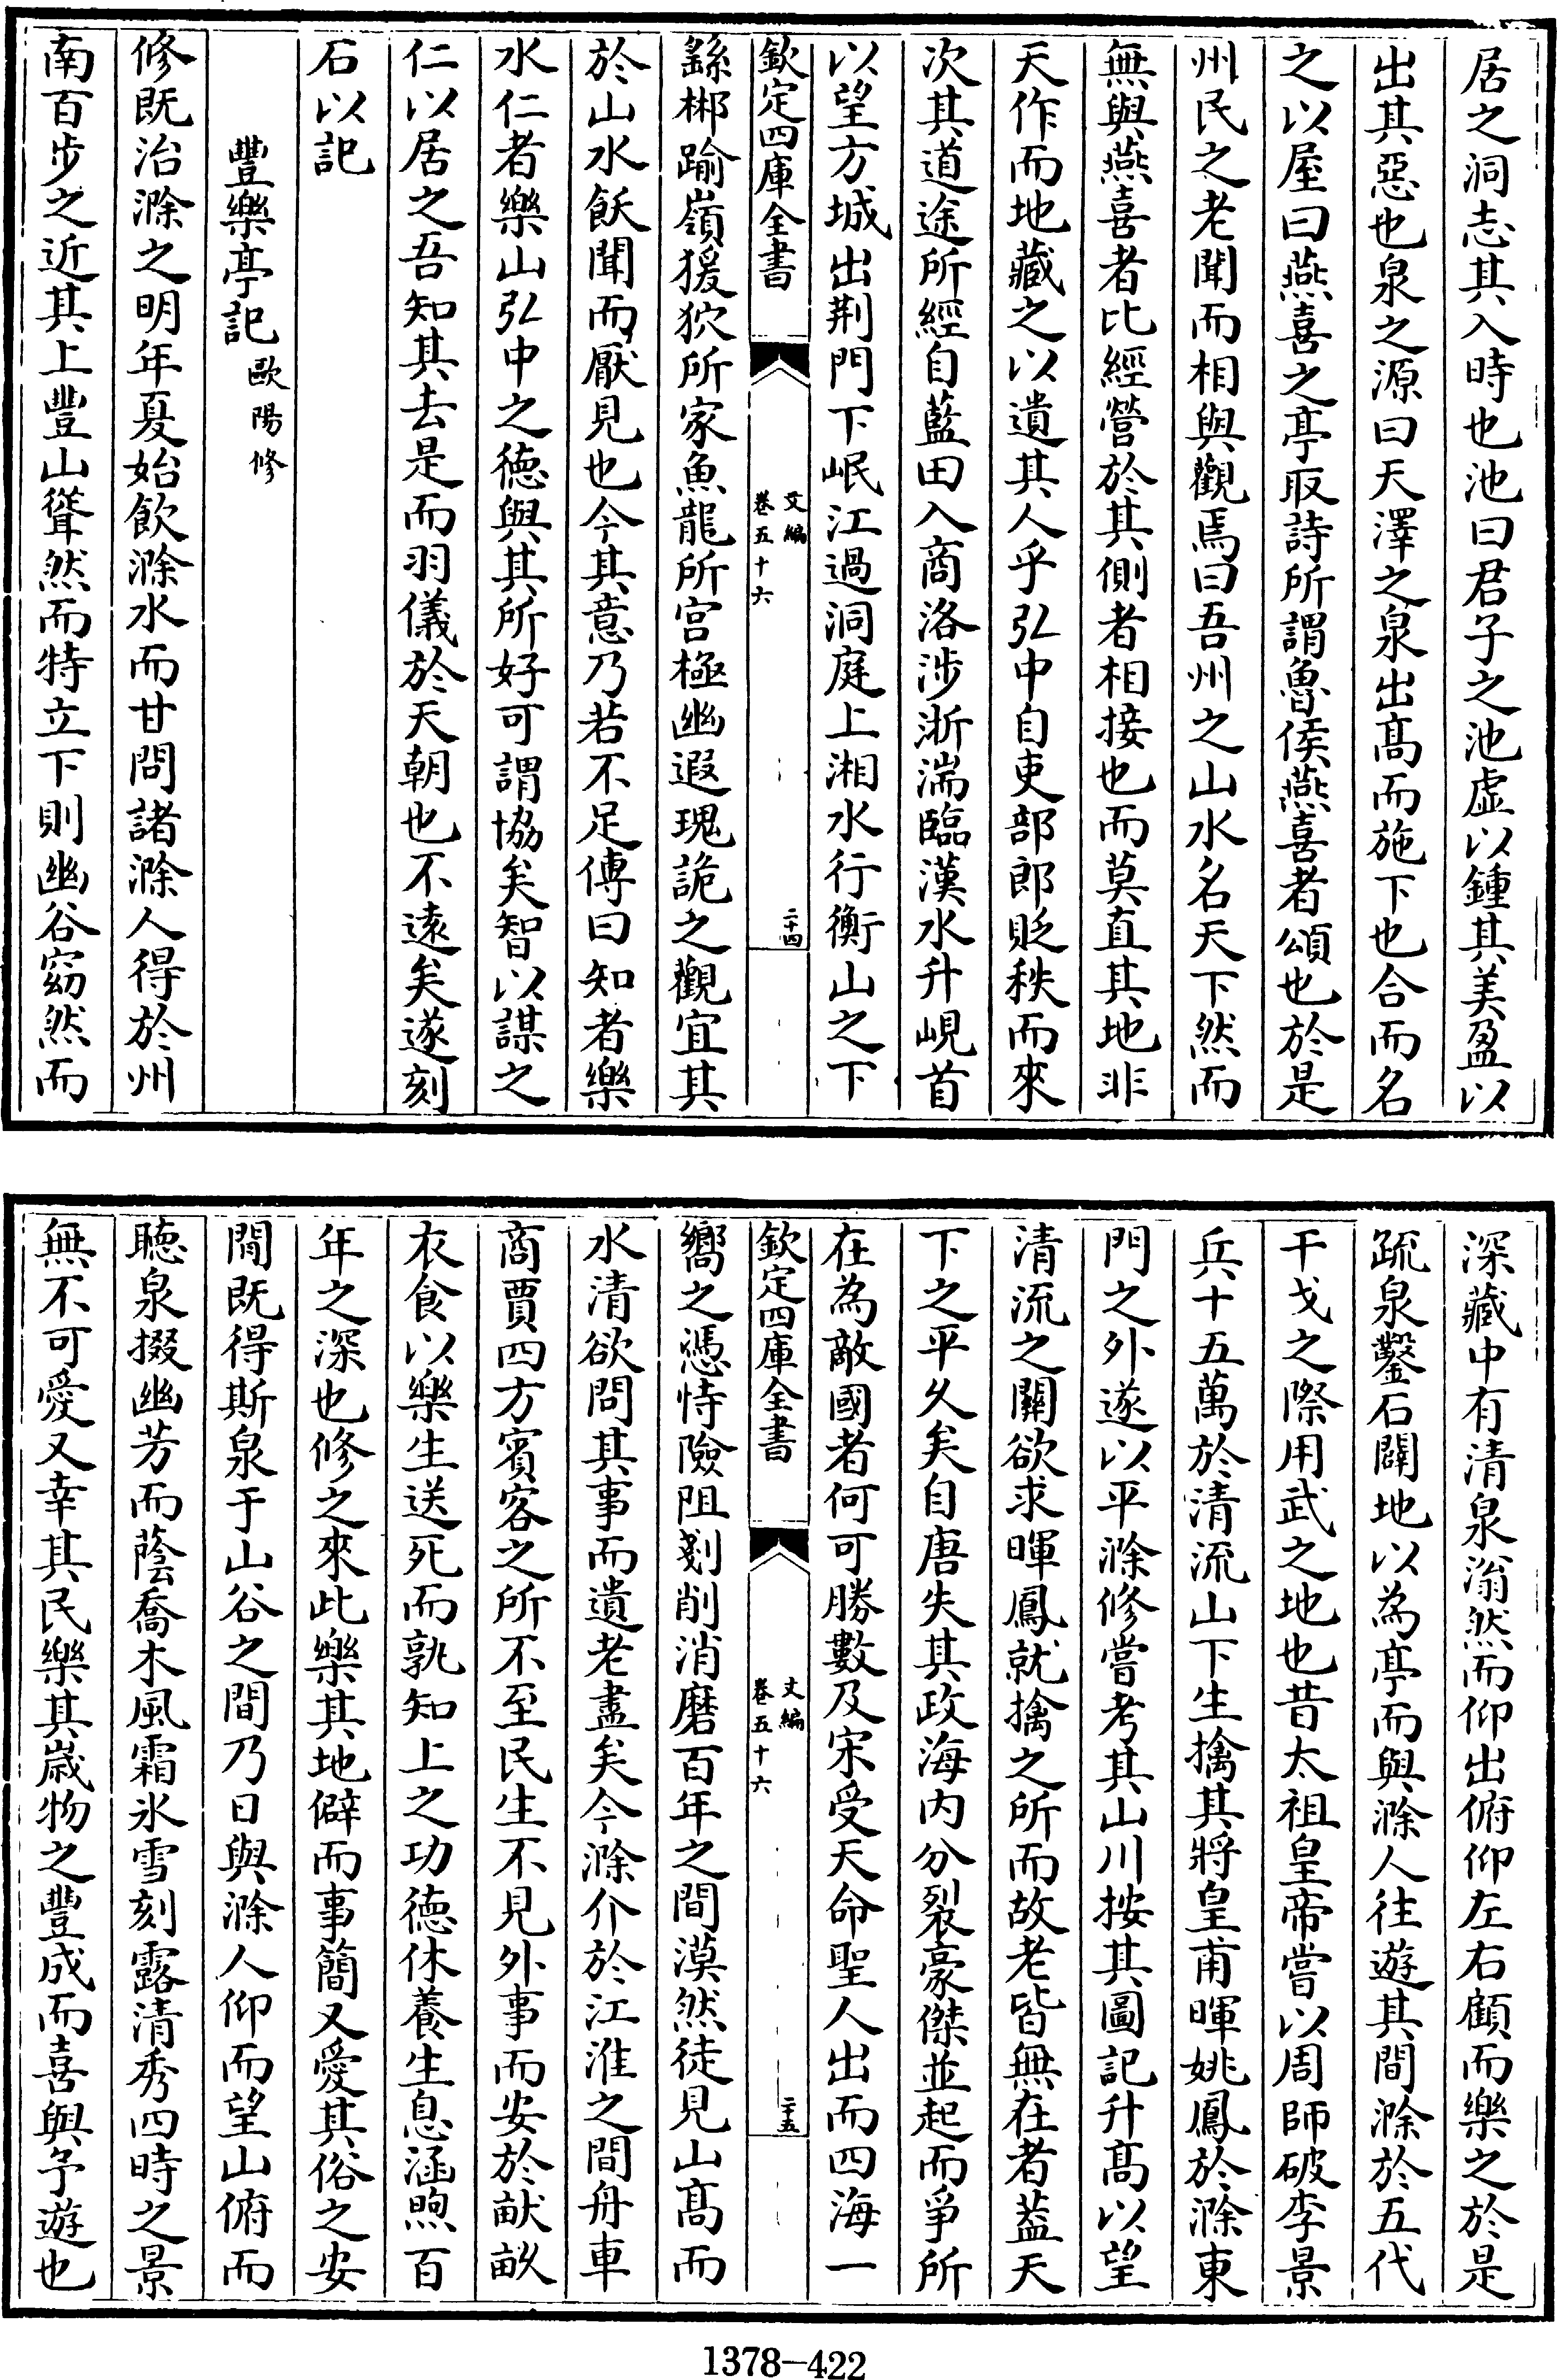 居之洞志其入時也池曰君子之池虛以鍾其美盈以
出其惡也泉之源曰天澤之泉出髙而施下也合而名
之以屋曰燕喜之亭取詩所謂魯侯燕喜者頌也於是
州民之老聞而相與觀焉曰吾州之山水名天下然而
無與燕喜者比經營於其側者相接也而莫直其地非
天作而地藏之以遺其人乎弘中自吏部郎貶秩而來
次其道途所經自藍田入商洛涉淅湍臨漢水升峴首
以望方城出荆門下岷江過洞庭上湘水行衡山之下
欽定四庫全書
文編
卷五十六
二十四
繇郴踰嶺猨狖所家魚龍所宫極幽遐瑰詭之觀宜其
於山水飫聞而厭見也今其意乃若不足傳曰知者樂
水仁者樂山弘中之德與其所好可謂協矣智以謀之
仁以居之吾知其去是而羽儀於天朝也不遠矣遂刻
石以記
豐樂亭記 歐陽修
修既治滁之明年夏始飲滁水而甘問諸滁人得於州
南百步之近其上豐山聳然而特立下則幽谷窈然而
深藏中有清泉滃然而仰出俯仰左右顧而樂之於是
疏泉鑿石闢地以為亭而與滁人往遊其間滁於五代
干戈之際用武之地也昔太祖皇帝嘗以周師破李景
兵十五萬於清流山下生擒其將皇甫暉姚鳳於滁東
門之外遂以平滁修嘗考其山川按其圖記升髙以望
清流之關欲求暉鳳就擒之所而故老皆無在者葢天
下之平久矣自唐失其政海内分裂豪傑並起而爭所
在為敵國者何可勝數及宋受天命聖人出而四海一
欽定四庫全書
文編
卷五十六
二十五
嚮之憑恃險阻剗削消磨百年之間漠然徒見山髙而
水清欲問其事而遺老盡矣今滁介於江淮之間舟車
商賈四方賓客之所不至民生不見外事而安於畎畝
衣食以樂生送死而孰知上之功德休養生息涵煦百
年之深也修之來此樂其地僻而事簡又愛其俗之安
閒既得斯泉于山谷之間乃日與滁人仰而望山俯而
聽泉掇幽芳而蔭喬木風霜氷雪刻露清秀四時之景
無不可愛又幸其民樂其歲物之豐成而喜與予遊也
1378—422